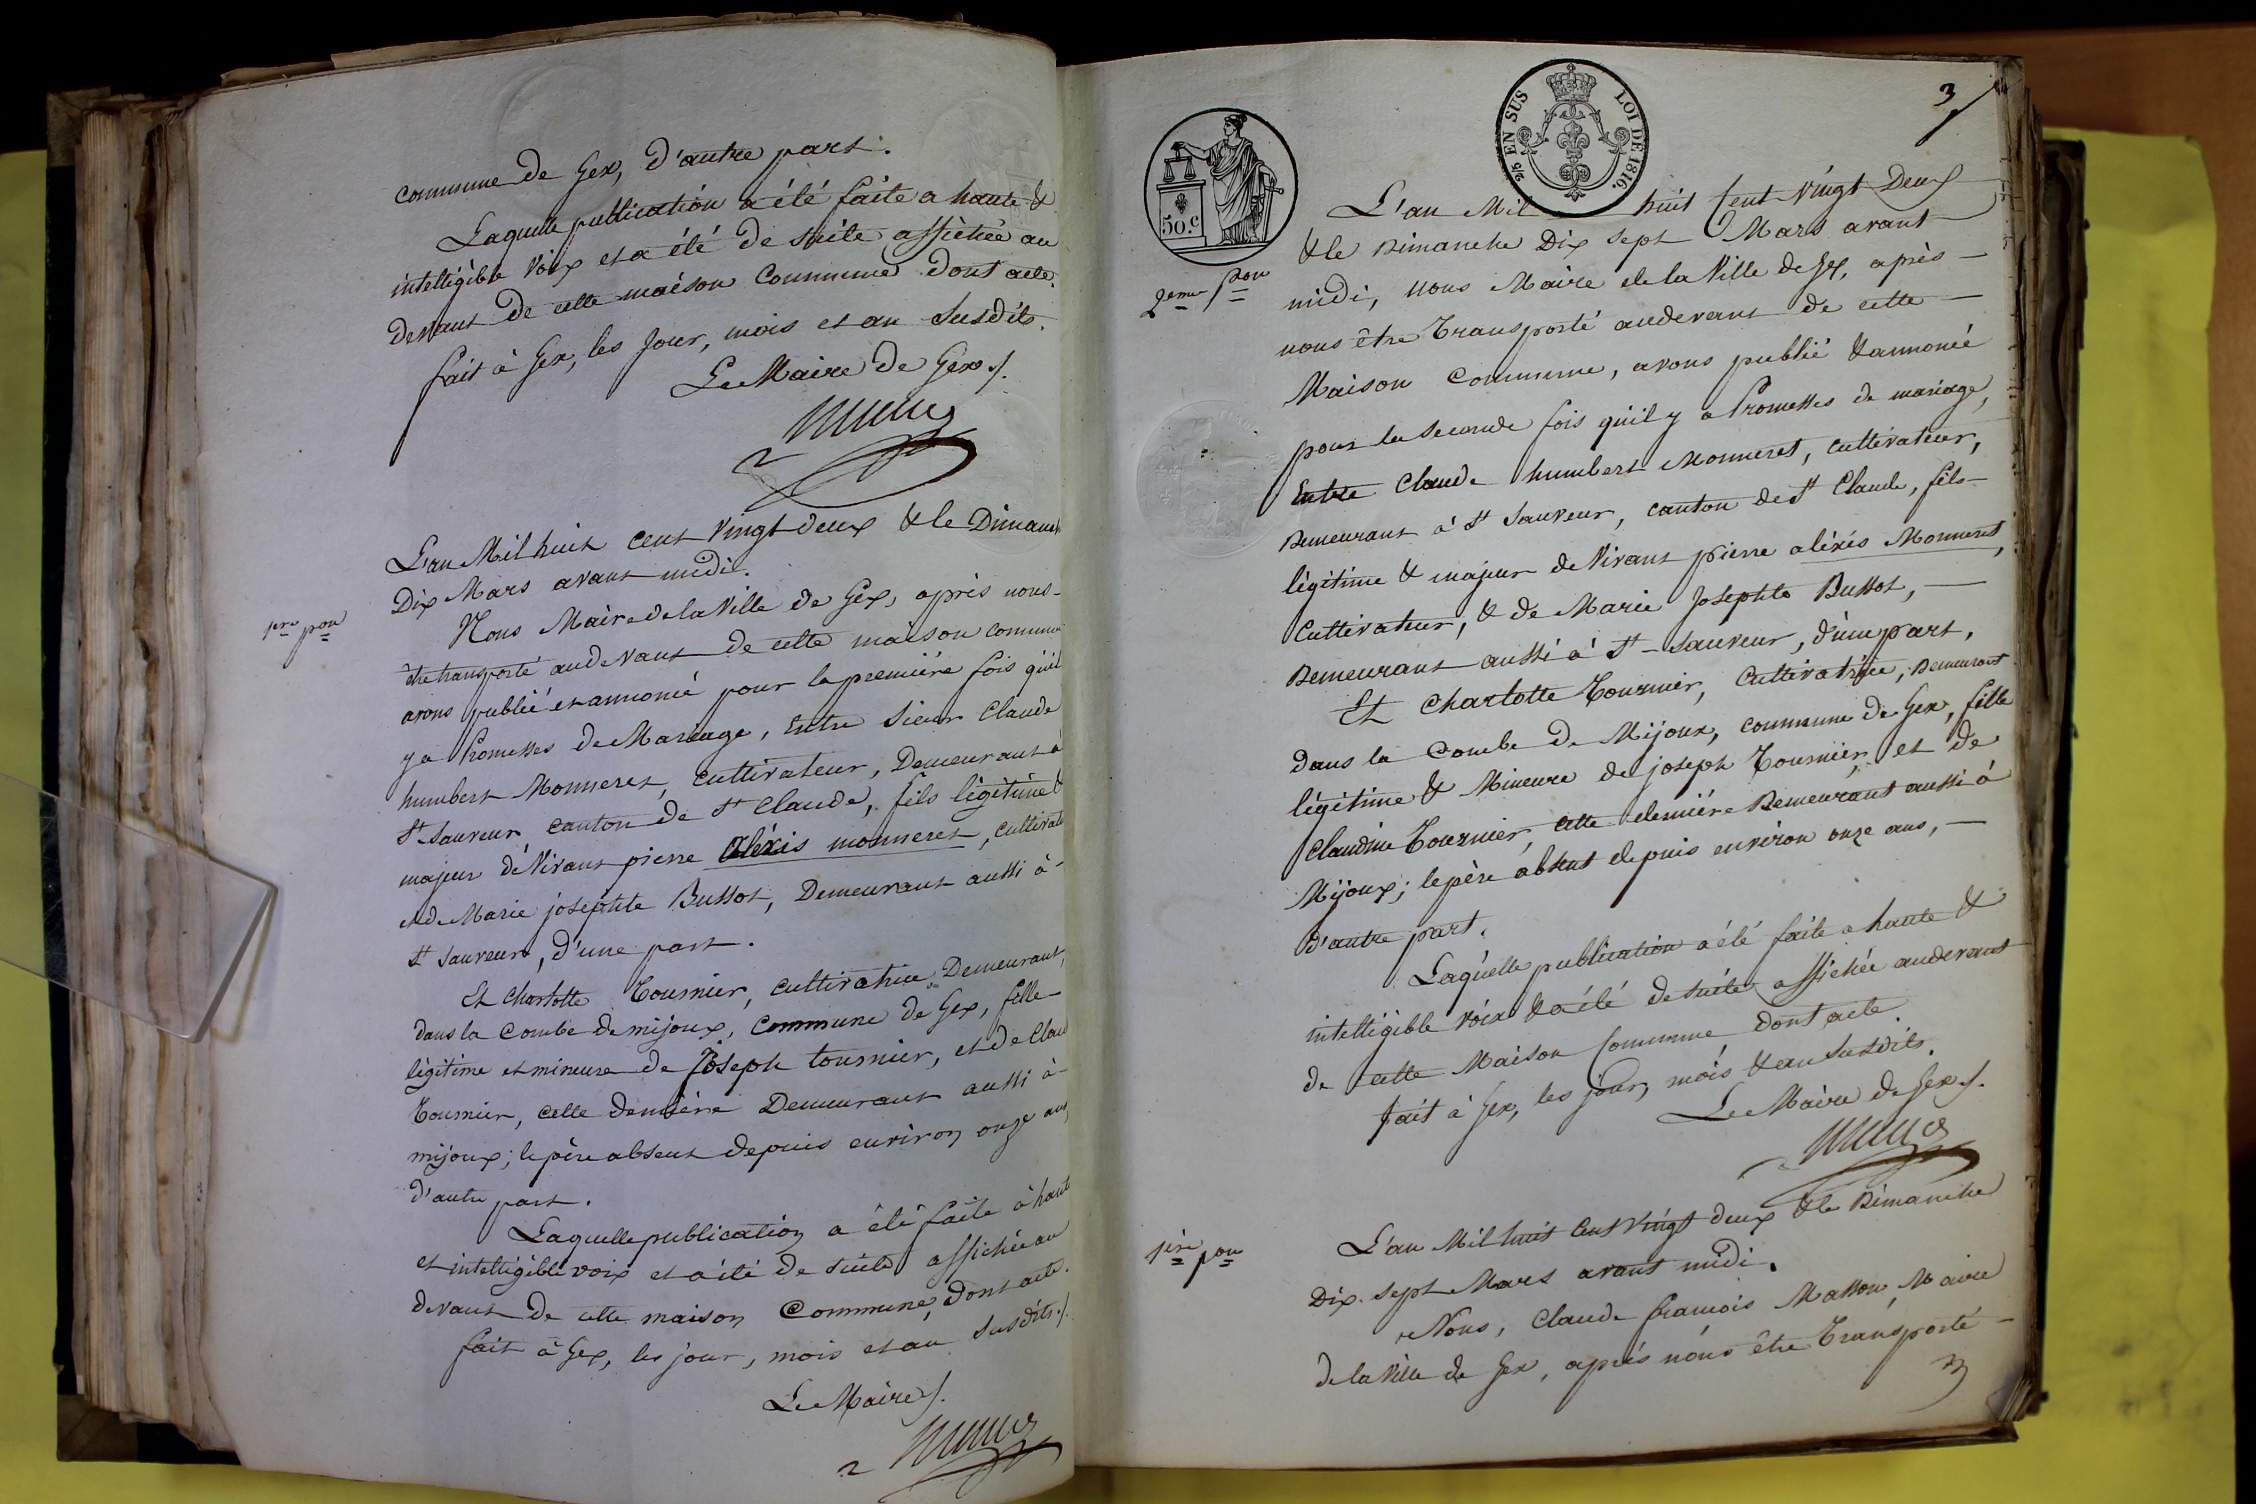 commune de Gex, d'autre part.
Laquelle publication a été faite a haute &
intelligible voix et a été de suite affichée au
devant de cette maison Commune dont acte.
fait à Gex, les Jour, mois et an susdits.
Le Maire de Gex /.
L'an Mil huit cent vingt deux & le Dimanche
Dix Mars avant midi.
1ere pon
Nous Maire de la Ville de Gex, après nous-
être transporté au devant de cette maison commune
avons publié et annoncé pour la première fois qu'il
y a Promesses de Mariage, Entre Sieur Claude
humbert Monneret, cultivateur, Demeurant à
St Sauveur canton de St Claude, fils légitime &
majeur de Vivans pierre Alexis monneret, cultivate
et de Marie josephte Bussot, Demeurant aussi à-
St Sauveur, d'une part.
Et Charlotte Tournier, cultivatrice Demeurant,
dans la Combe de mijoux, Commune de Gex, fille
légitime et mineure de Joseph tournier, et de Clau
Tournier, cette dernière Demeurant aussi à-
mijoux; le père absent depuis environ onze ans,
d'autre part.
Laquelle publication a été faite à haute
et intelligible voix et a été de suite affichée au
devant de cette maison Commune, dont acte.
fait à Gex, les jour, mois et an susdits /.
Le Maire /.
3
2/5 EN SUS LOI DE 1816.
50.c
2eme pon
L'an Mil huit Cent Vingt Deux
& le Dimanche Dix sept Mars avant
midi, nous Maire de la Ville de Gex, après
nous être Transporté audevant de cette
Maison Commune, avons publié & annoncé
pour la seconde fois qu'il y a Promesses de mariage,
Entre Claude humbert Monneret, cultivateur,
Demeurant à St Sauveur, canton de St Claude, fils
légitime & majeur de Vivans pierre aléxis Monneret,
Cultivateur, & de Marie Josephte Bussot,
Demeurant aussi à St-Sauveur, d'une part,
Et Charlotte Tournier, Cultivatrice, Demeurant
dans la Combe de Mijoux, commune de Gex, fille
légitime & Mineure de joseph Tournier, et de
Claudine Tournier, cette dernière Demeurant aussi à
Mijoux; le père absent depuis environ onze ans,
d'autre part.
Laquelle publication a été faite a haute &
intelligible voix & a été de suite affichée audevant
de cette Maison Commune, dont acte.
fait à Gex, les jour, mois & an susdits.
Le Maire de Gex /.
1ere pon
L'an Mil huit Cent Vingt deux & le Dimanche
Dix-sept Mars avant midi.
Nous, Claude françois Masson, Maire
de la Ville de Gex, après nous être Transporté
3